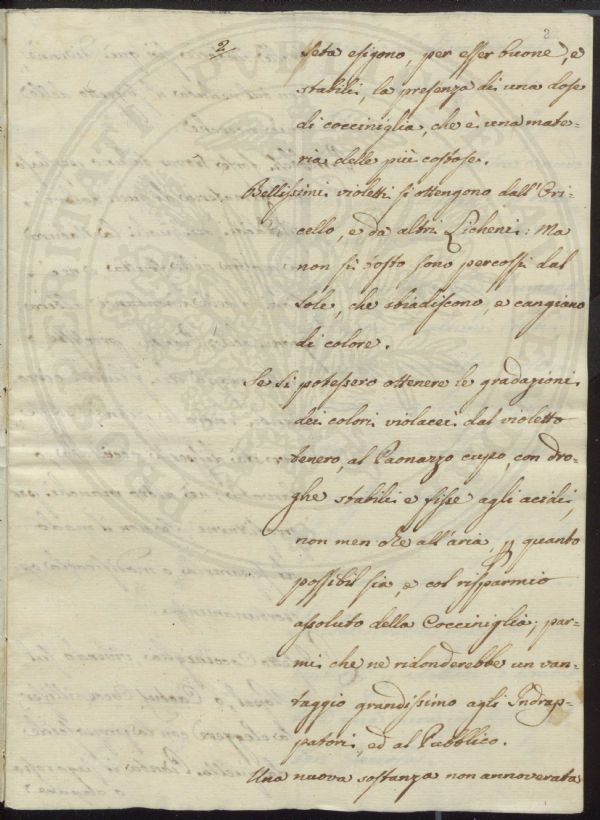 2
2
seta esigono, per esser buone, e
stabili, la presenza di una dose
di cocciniglia, che è una mate-
ria delle più costose.
Bellissimi violetti si ottengono dall'Ori-
cello, e da altri Licheni: Ma
non sì tosto sono percossi dal
Sole, che sbiadiscono, e cangiano
di colore.
Se si potessero ottenere le gradazioni
dei colori violacei dal violetto
tenero, al Paonazzo cupo, con dro-
ghe stabili e fisse agli acidi,
non men che all'aria, quanto
possibil sia, e col risparmio
assoluto della Cocciniglia; par-
mi che ne ridonderebbe un van-
taggio grandissimo agli Indrap-
patori, ed al Pubblico.
Una nuova sostanza non annoverata